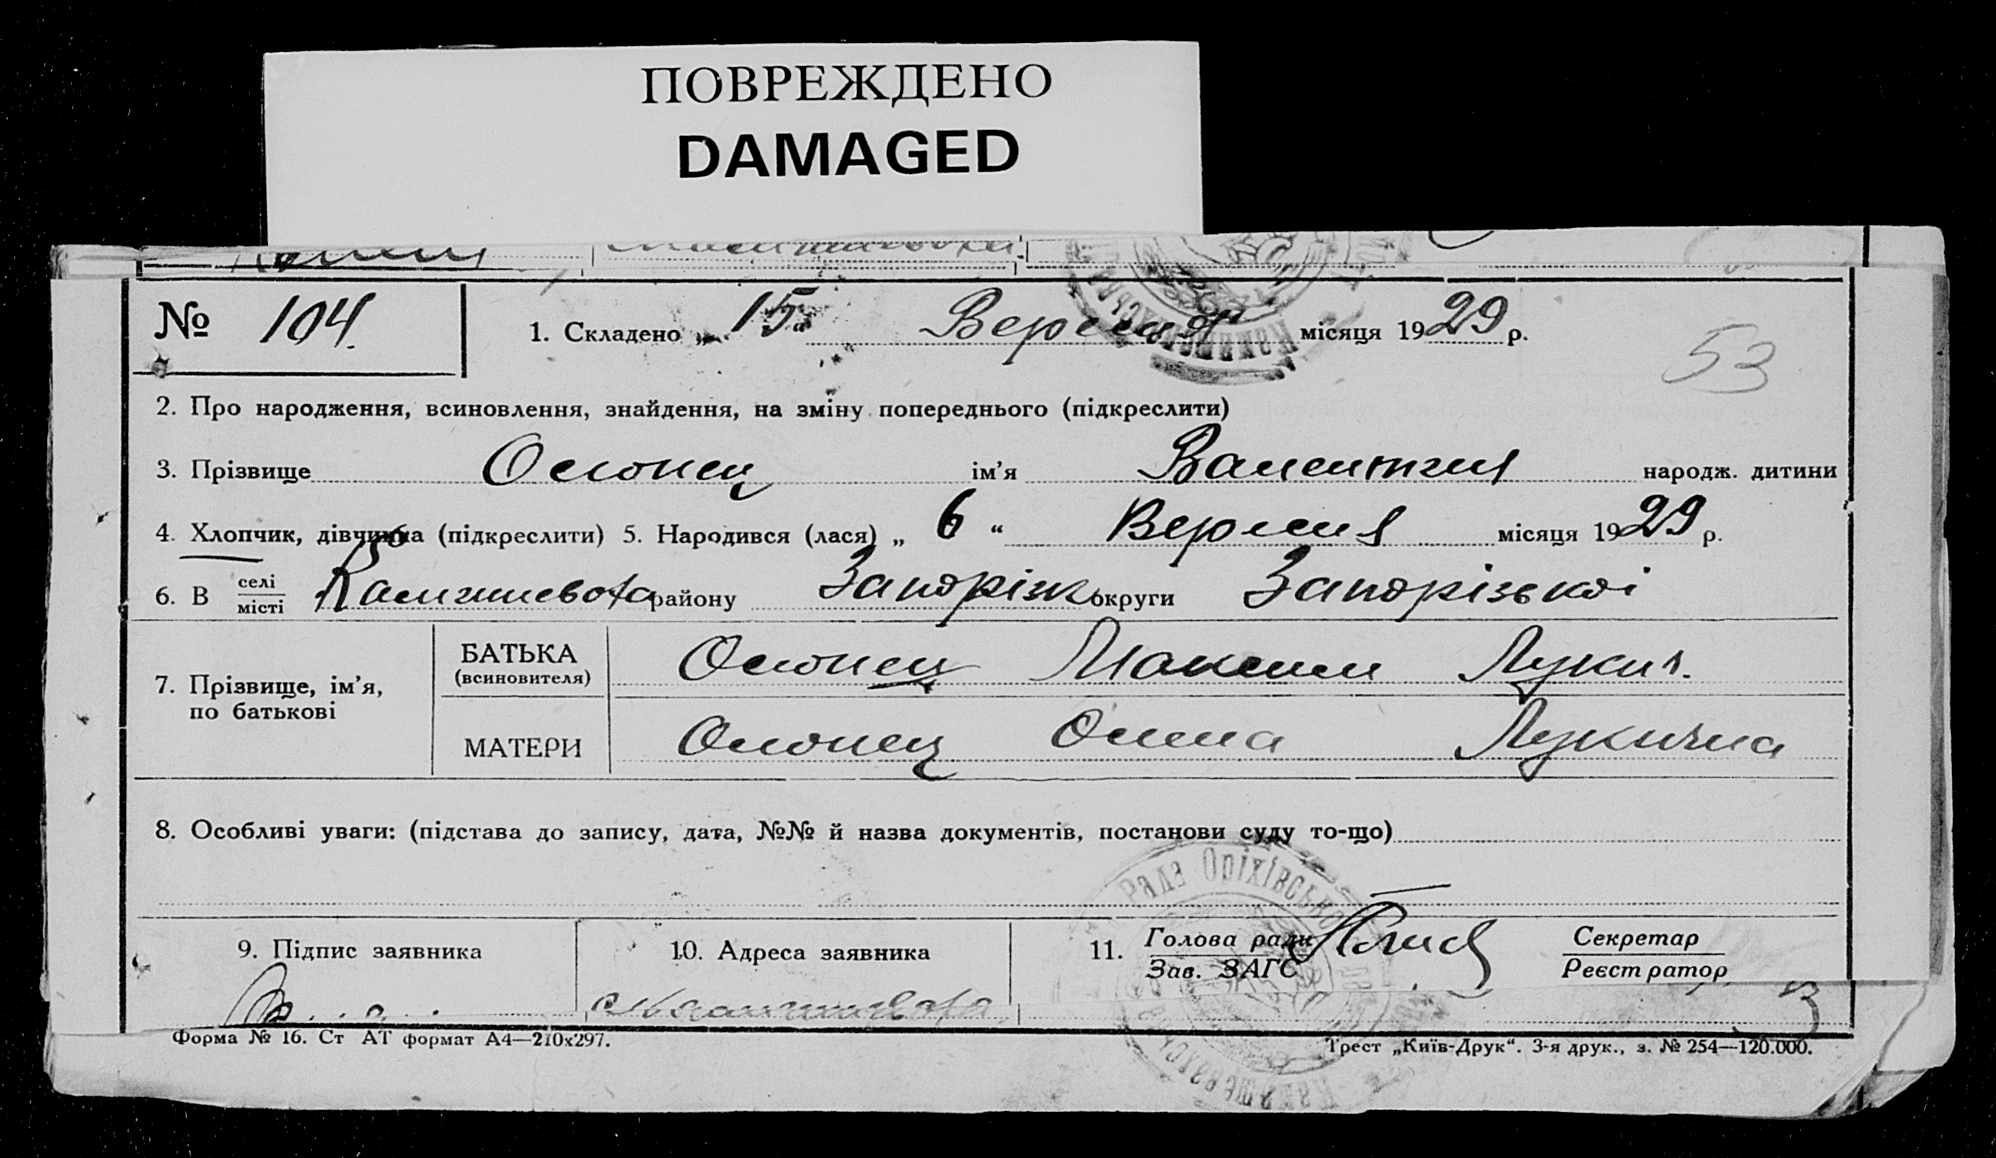 ПОВРЕЖДЕНО
DAMAGED
№ 104. 1. Складено „ 15 “ Вересня місяця 1929 р.
53
2. Про народження, всиновлення, знайдення, на зміну попереднього (підкреслити)
3. Прізвище ім’я Валентин народж. дитини
4. Хлопчик, дівчинка (підкреслити) 5. Народився (лася) „ 6 “ Вересня місяця 1929 р.
6. В селі місті району Запоріж округи Запорізькоі
7. Прізвище, ім’я, по батькові
БАТЬКА (всиновителя) Максим Лукич.
МАТЕРИ Лукична
8. Особливі уваги: (підстава до запису, дата, №№ й назва документів, постанови суду то-що)
Рада Оріхівсько
9. Підпис заявника 10. Адреса заявника 11. Голова ради Зав. ЗАГС Секретар Реєстратор
Форма № 16. Ст АТ формат А4—210х297. Трест „Київ-Друк“. 3-я друк., з. № 254—120.000.